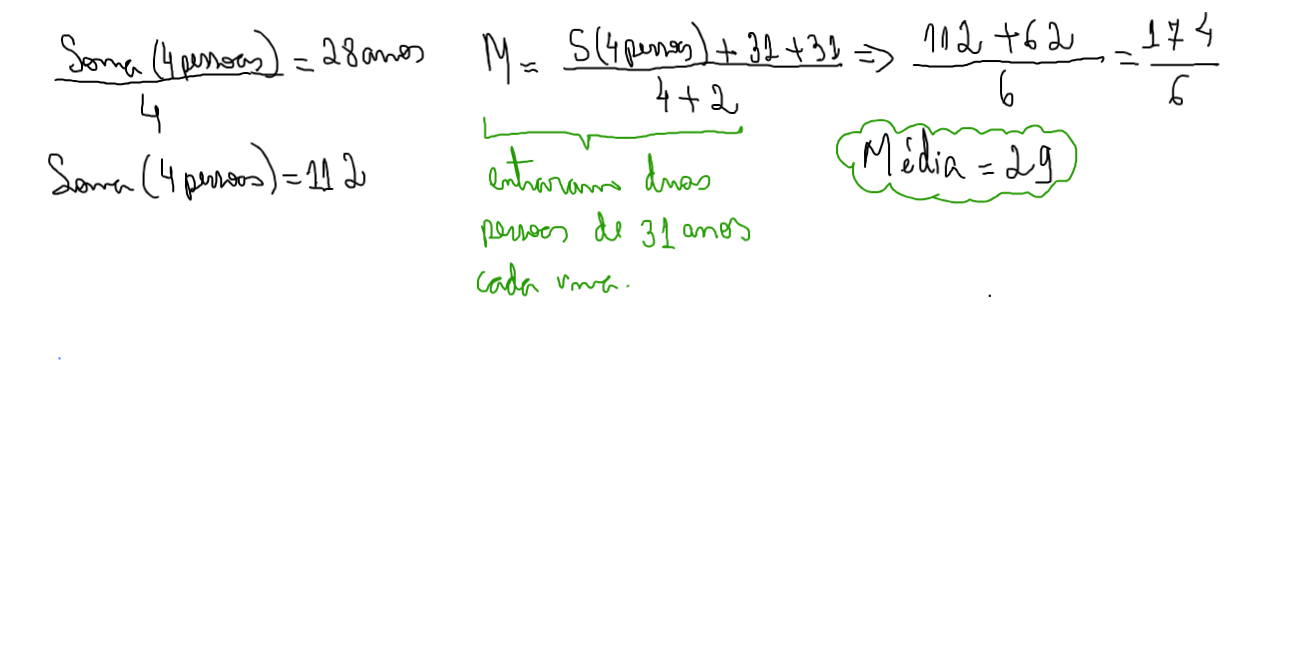 Soma (4 pessoas) = 28 anos
4
Soma (4 pessoas) = 112
M = S(4 pessoas) + 31 + 31 => 112 + 62 = 174
4 + 2 6 6
entraram duas
pessoas de 31 anos
cada uma.
Média = 29